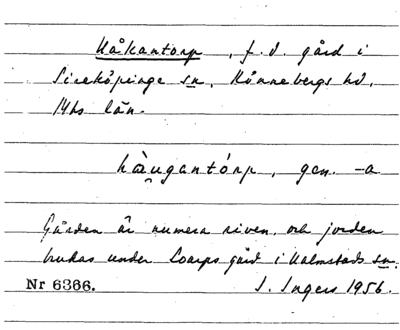 Håkantorp, f.d. gård i
Sireköpinge sn, Rönnebergs hd,
Mhs län.
hàu̯gantórp, gen. -a
Gården är numera riven, och jorden
brukas under Loarps gård i Halmstads sn.
Nr 6366. I. Ingers 1956.